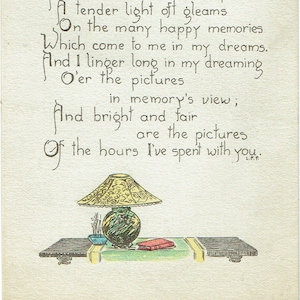 A tender light oft gleams
On the many happy memories
Which come to me in my dreams.
And I linger long in my dreaming
O'er the pictures
in memory's view;
And bright and fair
are the pictures
Of the hours I've spent with you.
L.P.P.